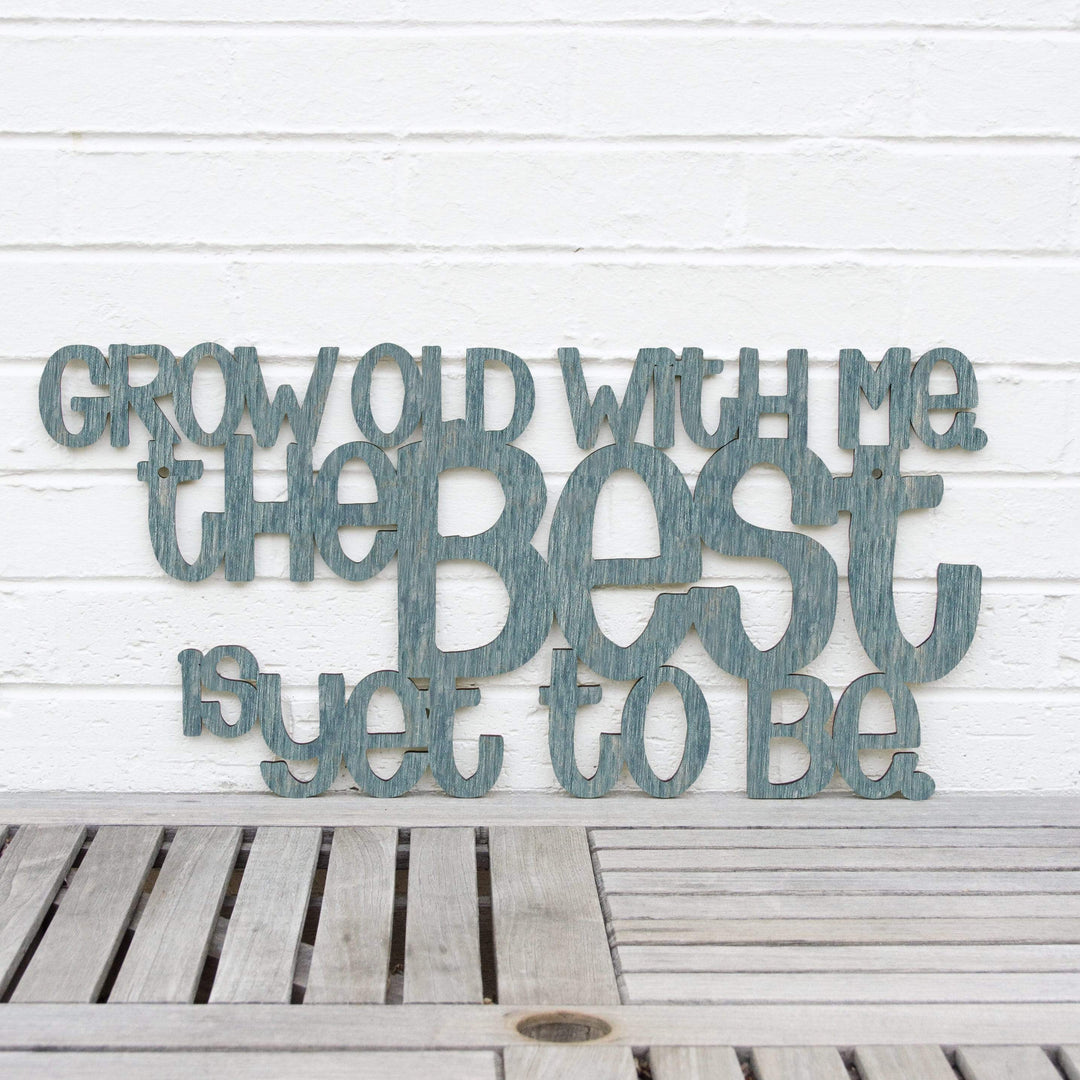 GROW OLD WITH Me.
the Best
is yet to Be.